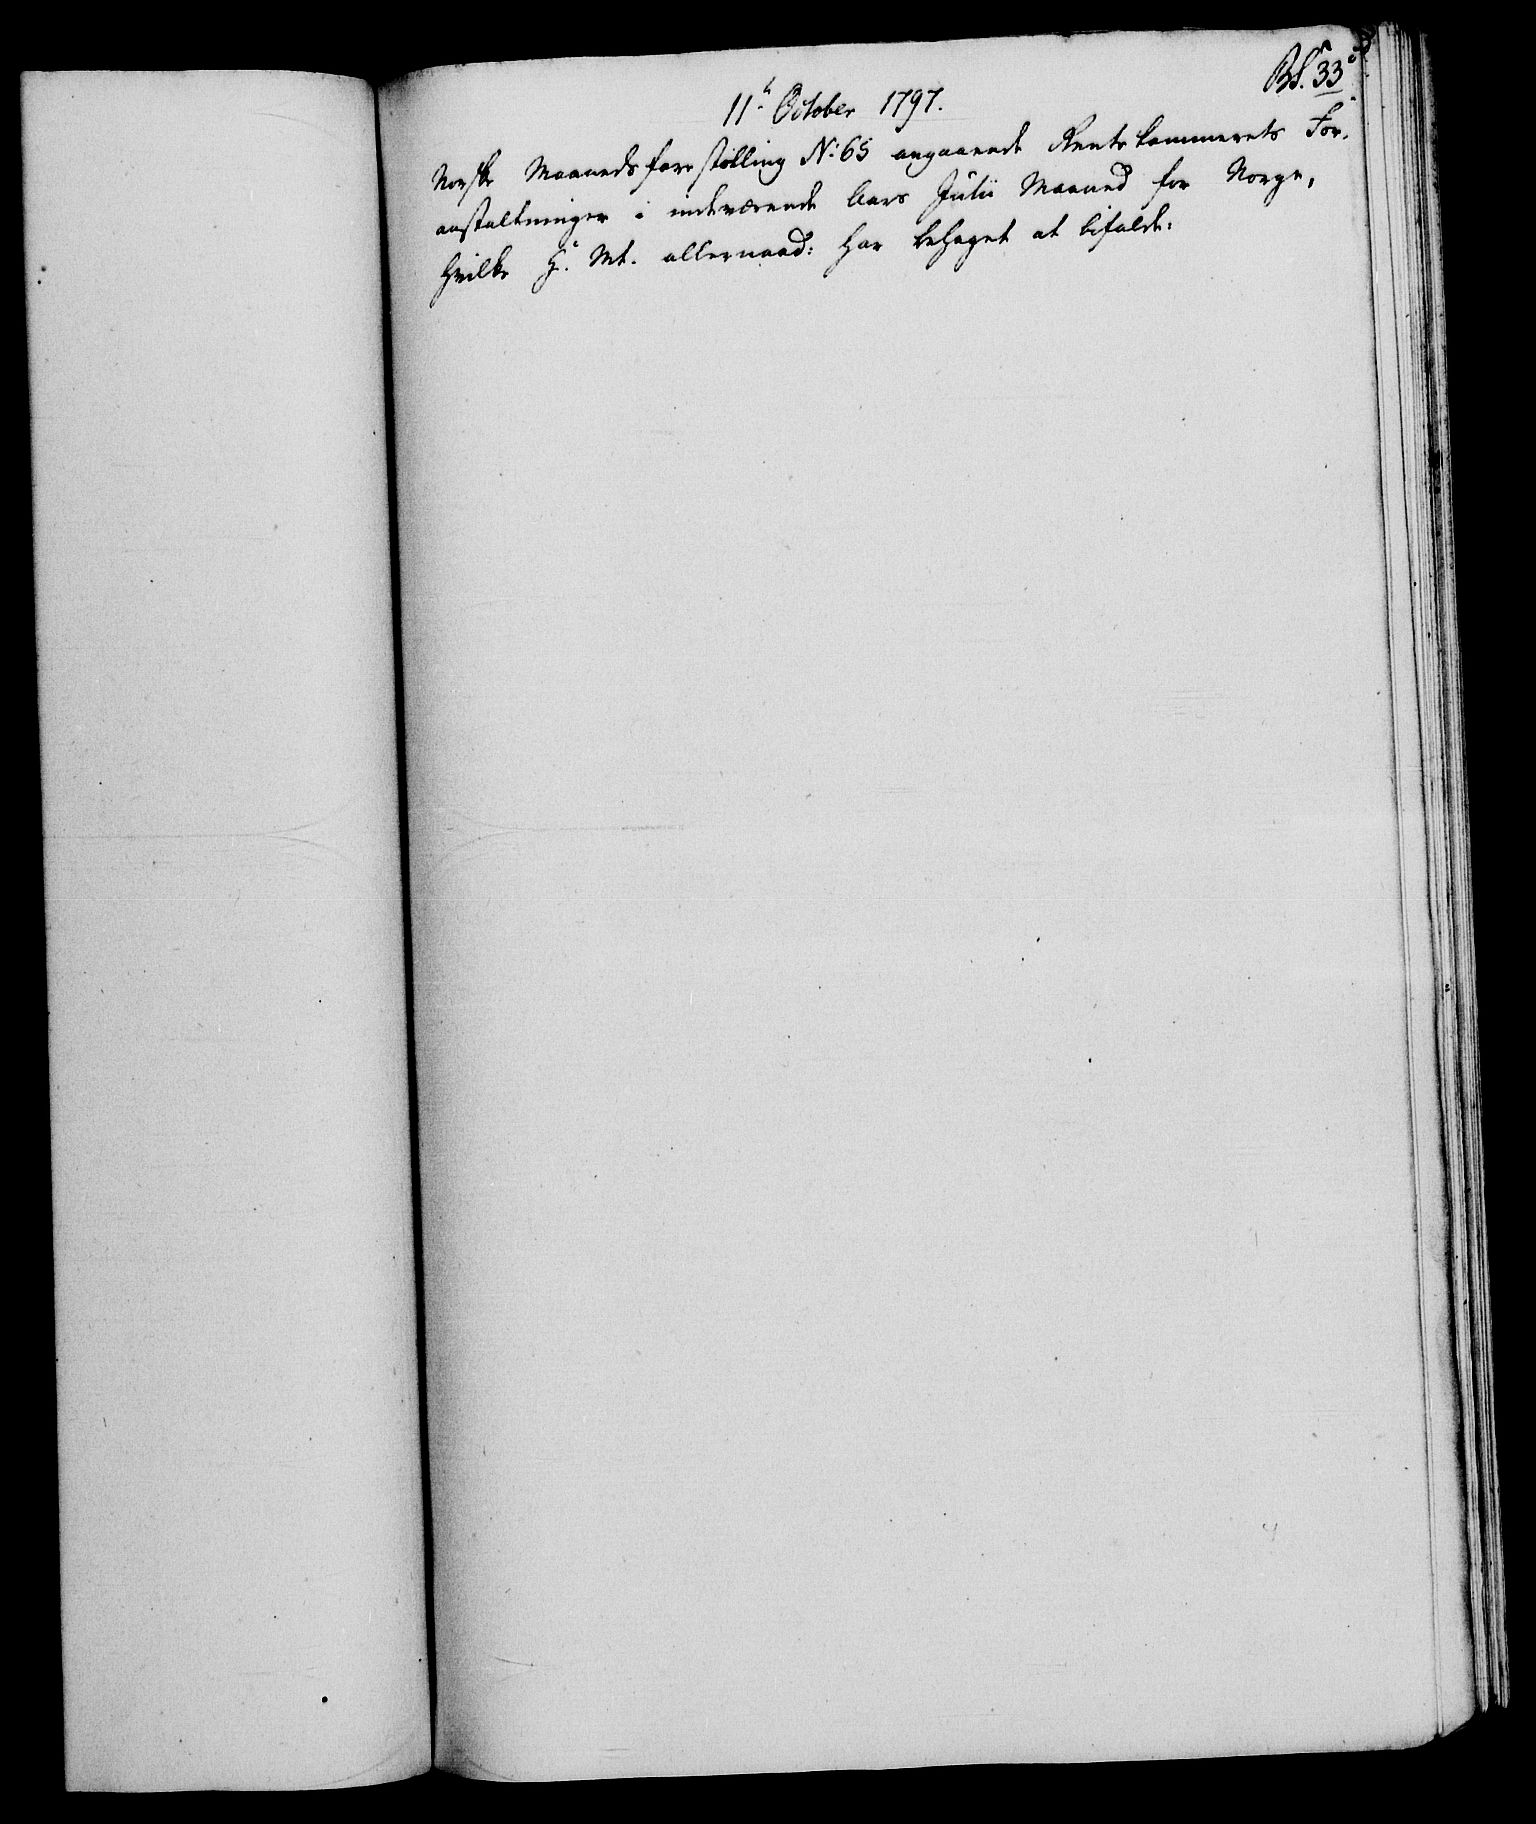 Bf. 33
11te October 1797.
Norske Maanedsforestilling No: 65 angaaende Rentekammerets For-
anstaltninger i indeværende Aars Julii Maaned for Norge,
hvilke H. Mt. allernaad: har behaget at bifalde.